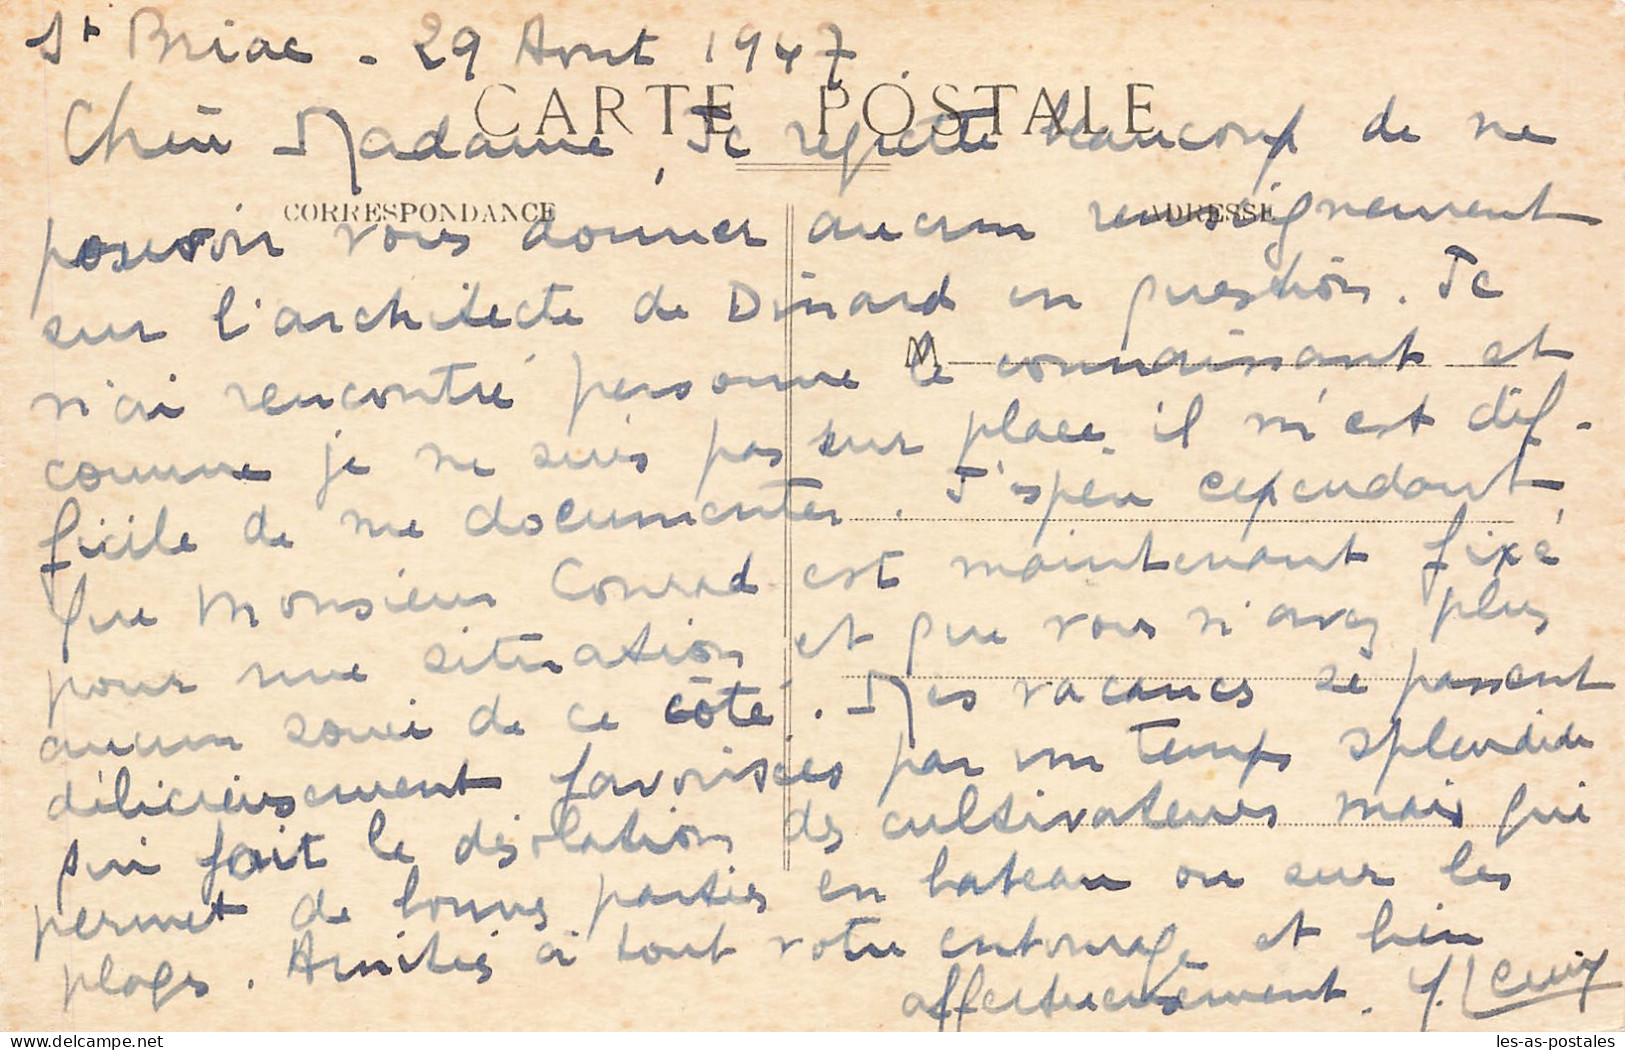 St Briac - 29 Aout 1947
CARTE POSTALE
Chère Madame, Je regrette beaucoup de ne
CORRESPONDANCE ADRESSE
pouvoir vous donner aucun renseignement
sur l'architecte de Dinard en question. Je
n'ai rencontré personne le connaissant et
comme je ne suis pas sur place il m'est dif-
ficile de me documenter. J'espère cependant,
que Monsieur Conrad est maintenant fixé
pour une situation et que vous n'avez plus
aucun souci de ce côté. Mes vacances se passent
délicieusement favorisées par un temps splendide
qui fait le désolation des cultivateurs mais qui
permet de bonnes parties en bateau ou sur les
plages. Amitiés à tout votre entourage et bien
affectueusement. Y.
delcampe.net
les-as-postales